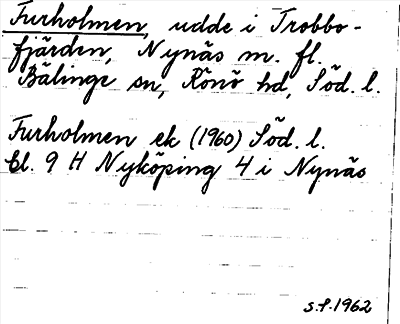 Furholmen, udde i Trobbo-
fjärden, Nynäs m. fl.
Bälinge sn, Rönö hd, Söd. l.
Furholmen ek (1960) Söd. l.
bl. 9 H Nyköping 4 i Nynäs
s.f. 1962